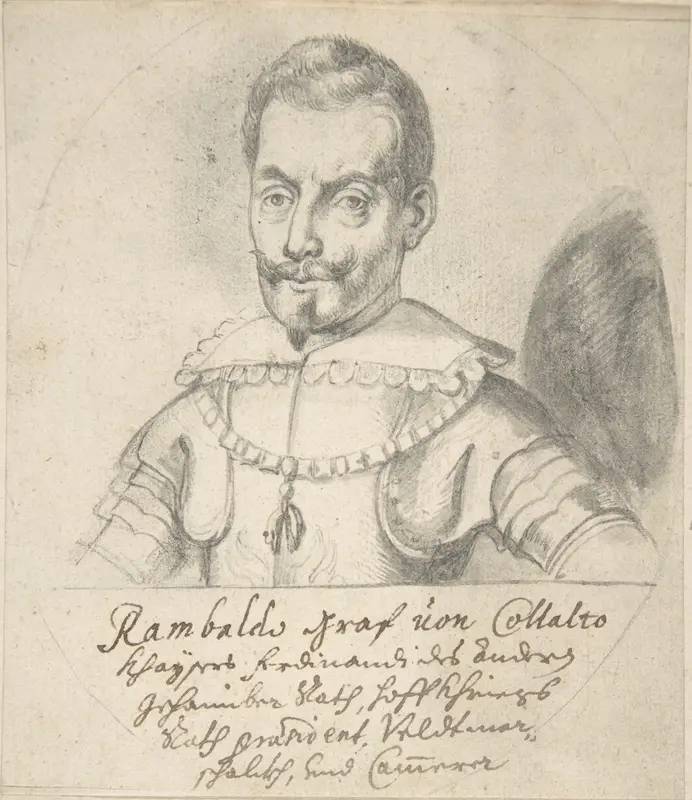 Rambaldo Graf von Collalto
Khaÿsers Ferdinandi des Andern
Gehaimber Rath, Hoff Khriegs
Rath præsident, Veldtmar„
schalckh, und Cam̅erer